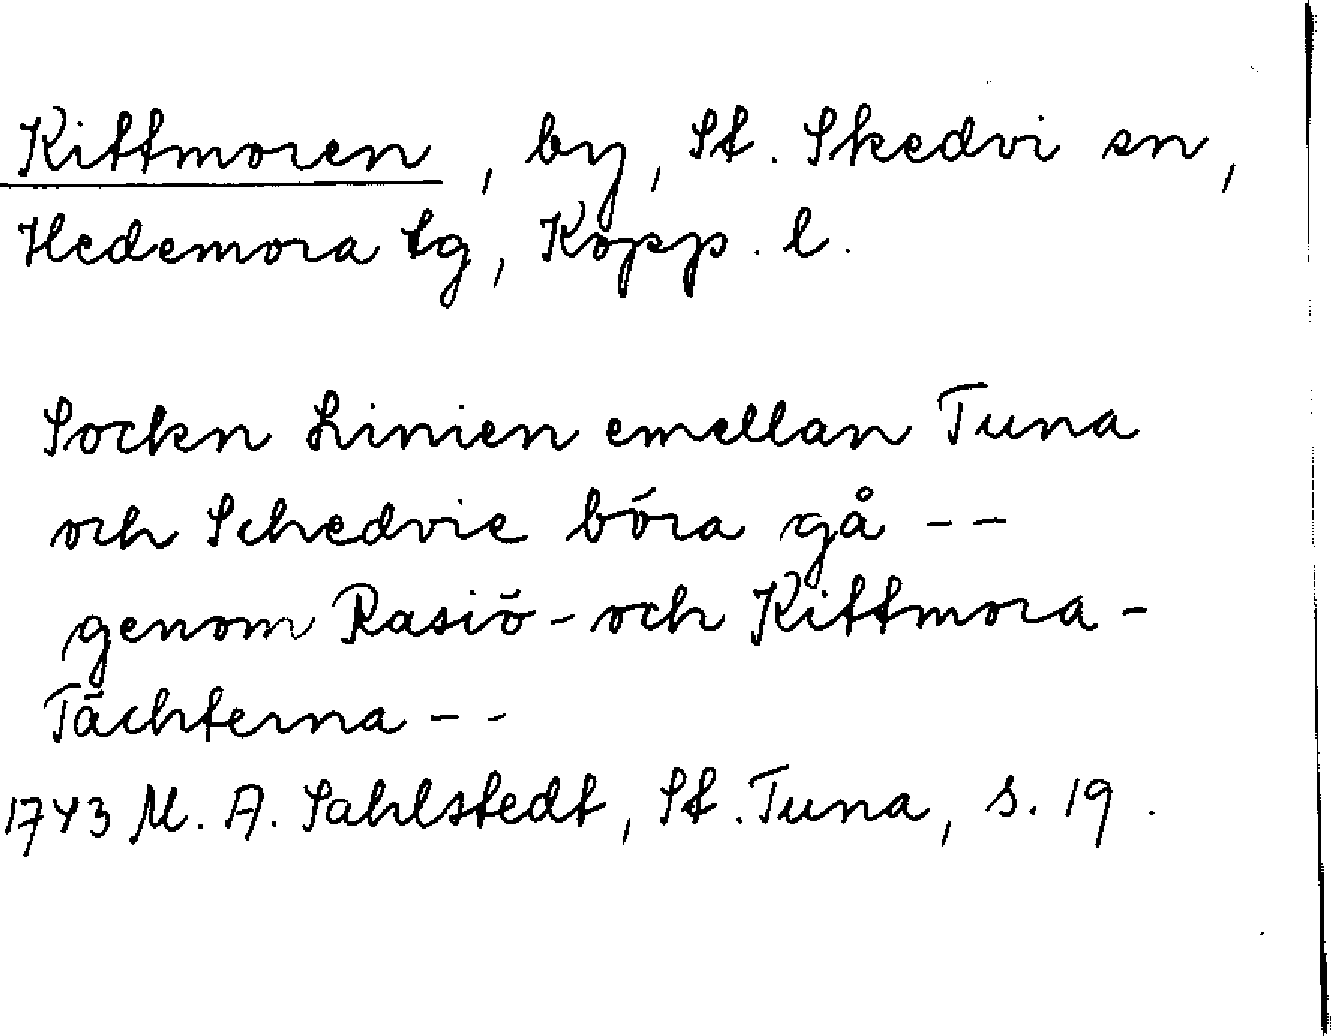 Kittmoren, by, St. Skedvi sn,
Hedemora tg, Kopp. l.
Sockn Linien emellan Tuna
och Schedvie böra gå --
genom Rasiö- och Kittmora-
Tächterna --
1743 M. A. Sahlstedt, St. Tuna, s. 19.